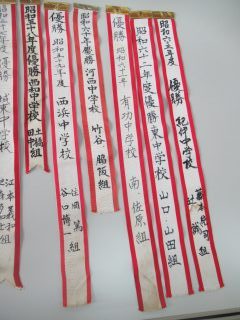 昭和六三年度 優勝 紀伊中学校
辻
昭和六十二年度優勝東中学校 山口・山田組
優勝 昭和六十一年 有功中学校 南 佐原組
昭和六十年度優勝 河西中学校 竹谷 脇阪組
優勝 昭和五十九年度 西浜中学校
住岡 篤
谷口博一
組
昭和五十八年度優勝西和中学校
土橋
田中
組
城東中学校
江本義和
組